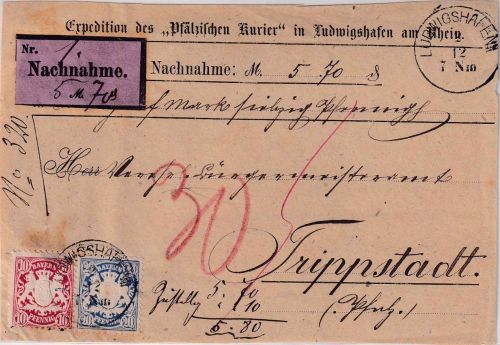 Expedition des „Pfälzischen Kurier“ in Ludwigshafen am Rhein.
Nr. 1
Nachnahme.
5 M. 70 ₰
Nachnahme: M. 5 70 ₰
LUDWIGSHAFEN
12
7 Nm
fünf Mark siebzig Pfennig
No 320.
Herr Bürgermeisteramt
30
Trippstadt.
(Pfalz.)
5. 70
10
5. 80
LUDWIGSHAFEN
7 Nm
BAYERN
10 10
PFENNIG
BAYERN
20 20
PFENNIG